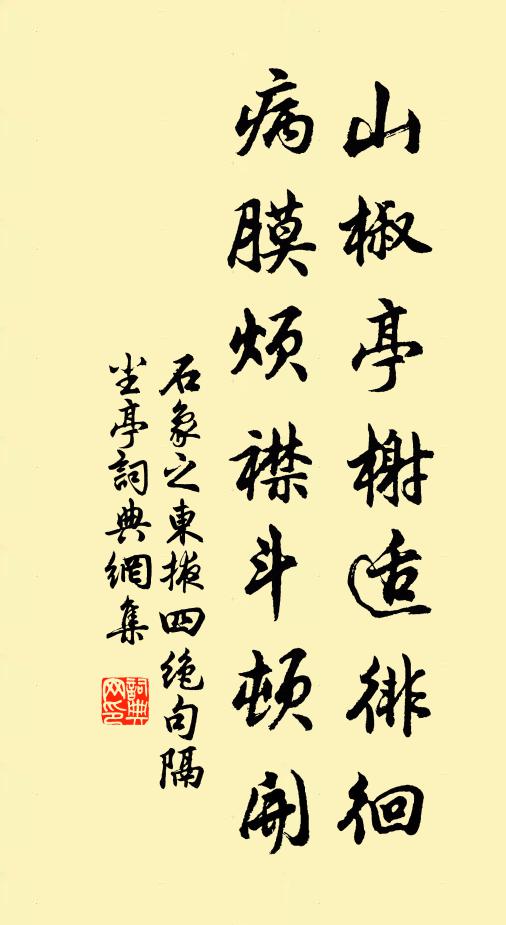 山椒亭榭适徘徊
病膜烦襟斗顿開
石象之東掖四绝句隔
尘亭詞典網集
詞典网印